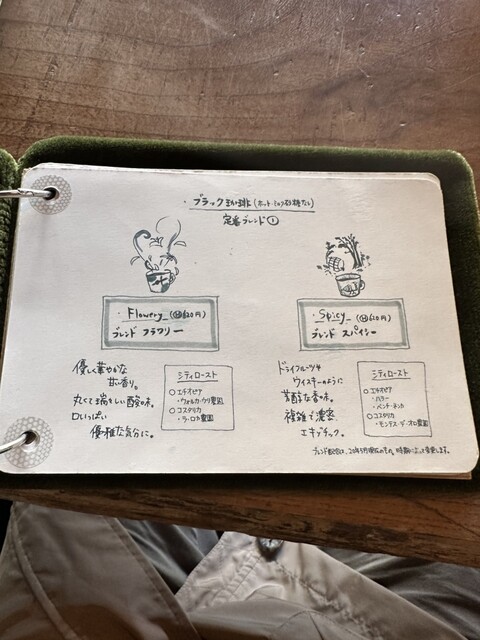 ・ブラック珈琲(ホット・ミルク砂糖なし)
定番ブレンド①
・Flowery_(H620円)
ブレンド フラワリー
優しく華やかな
甘い香り。
丸くて瑞々しい酸味。
口いっぱい
優雅な気分に。
シティロースト
○エチオピア
・ウォルカ・ウリ農園
○コスタリカ
・ラ・ロカ農園
・Spicy_(H620円)
ブレンド スパイシー
ドライフルーツや
ウイスキーのように
芳醇な香味。
複雑で濃密
エキゾチック。
シティロースト
○エチオピア
・ハラー
・ベンチ・ネンカ
○コスタリカ
・モンテス・デ・オロ農園
ブレンド配合は、20年5月現在のもの。時期によって変更します。